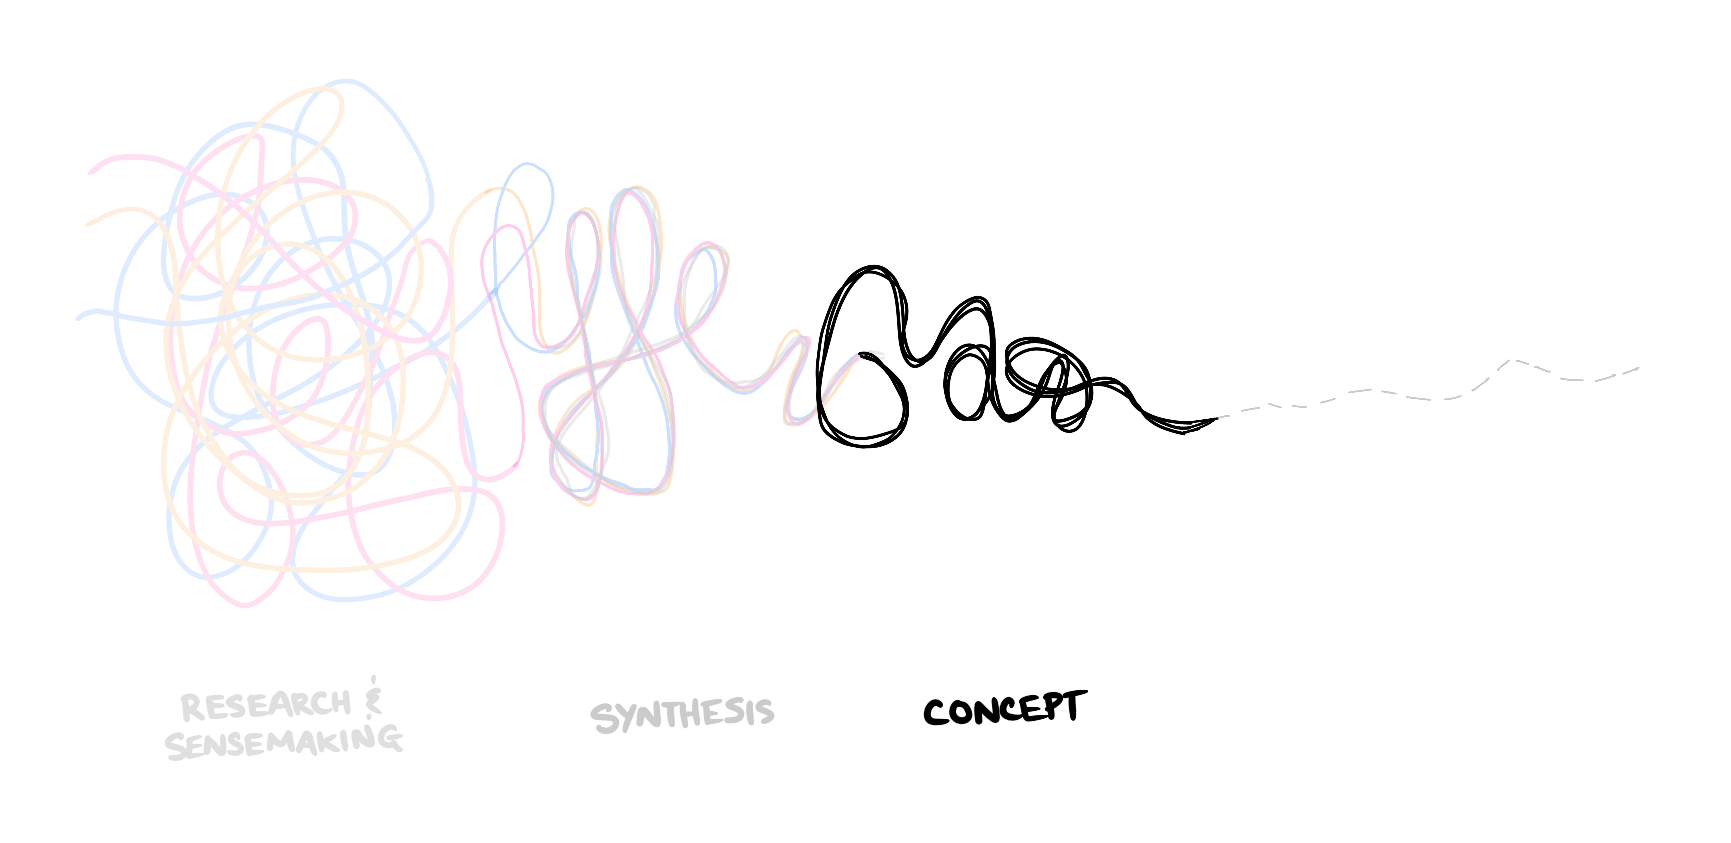 RESEARCH &
SENSEMAKING
SYNTHESIS
CONCEPT